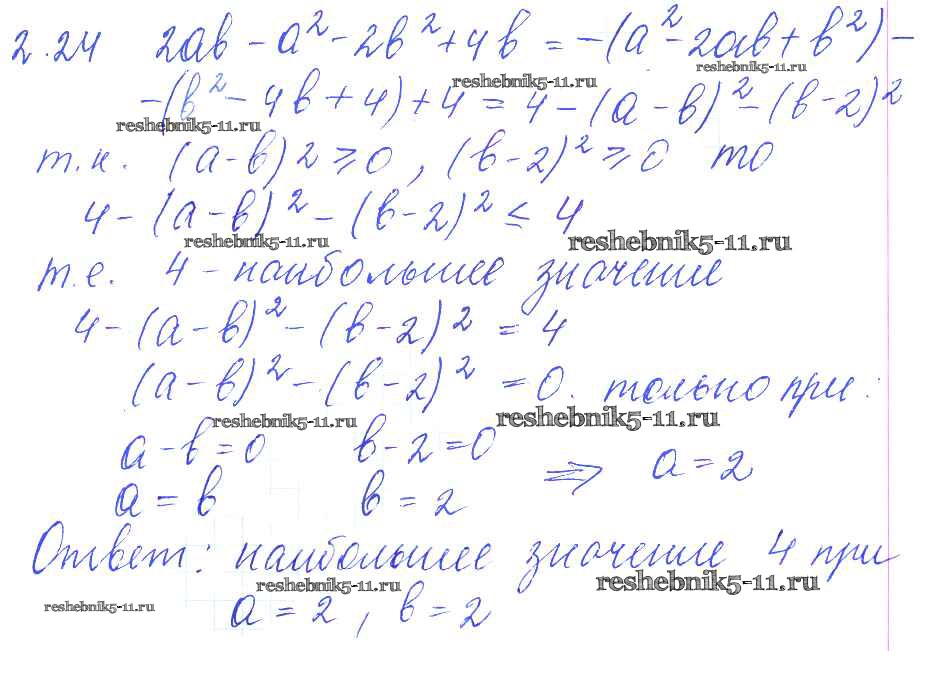 2.24 2ab - a² - 2b² + 4b = -(a² - 2ab + b²) -
reshebnik5-11.ru reshebnik5-11.ru
-(b² - 4b + 4) + 4 = 4 - (a - b)² - (b - 2)²
reshebnik5-11.ru
т.к. (a - b)2 ≥ 0, (b - 2)² ≥ 0 то
4 - (a - b)² - (b - 2)² ≤ 4
reshebnik5-11.ru reshebnik5-11.ru
т.е. 4 - наибольшее значение
4 - (a - b)² - (b - 2)² = 4
(a - b)² - (b - 2)² = 0. только при:
reshebnik5-11.ru reshebnik5-11.ru
a - b = 0 b - 2 = 0
⇒ a = 2
a = b b = 2
Ответ: наибольшее значение 4 при
reshebnik5-11.ru reshebnik5-11.ru
reshebnik5-11.ru
a = 2, b = 2